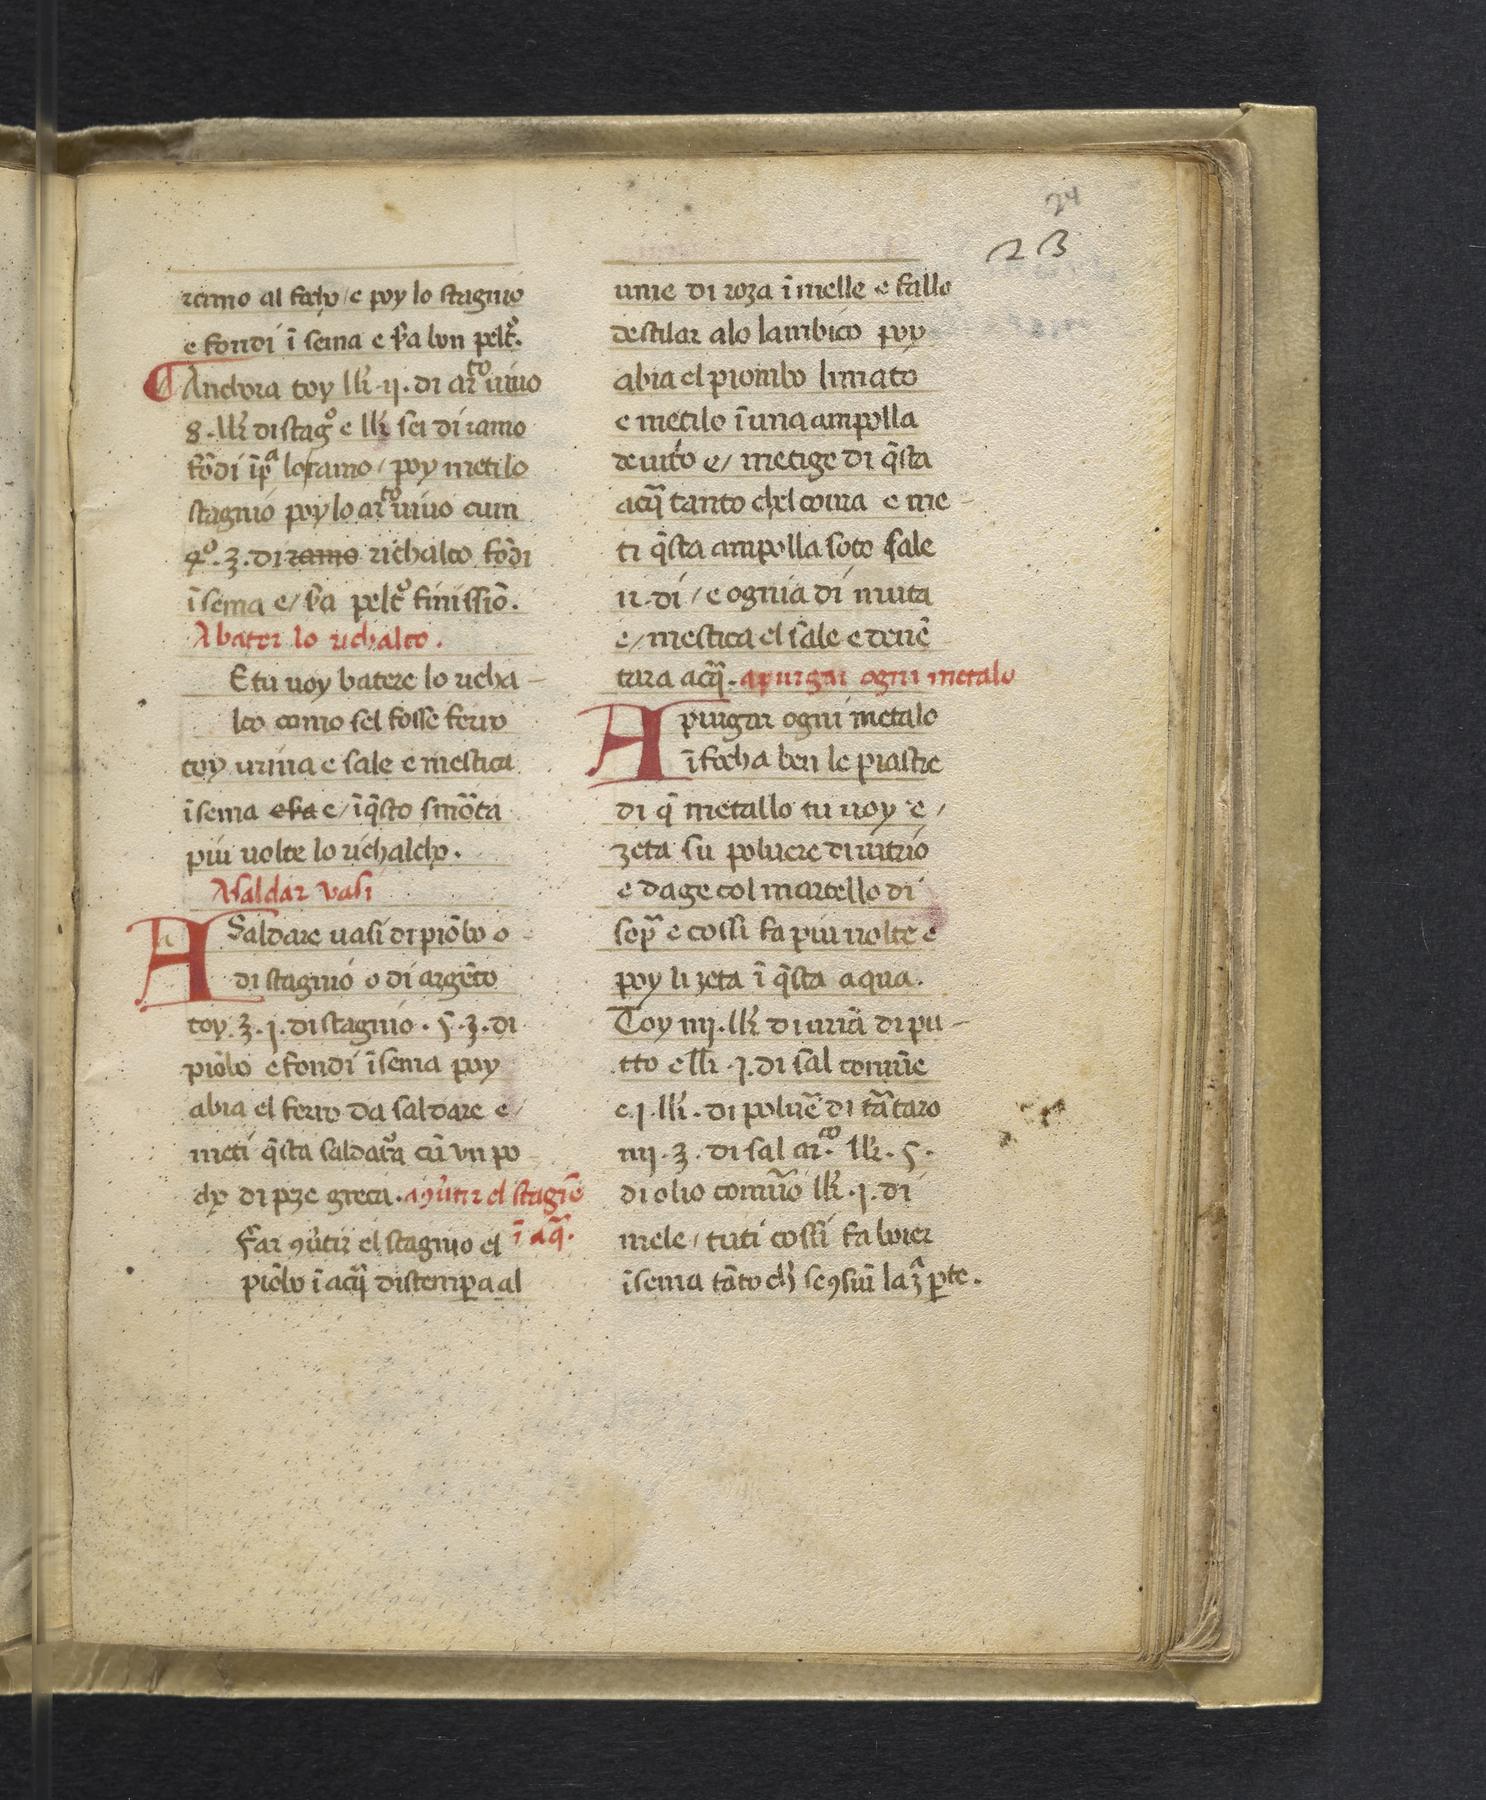 24
23
ramo al focho / e poy lo stagnio
e fondi ĩ sema e fa bon pelt͛o.
¶ Anchora toy llr̃ .ii. di arͭͦ uiuo
8. llr̃ di stagͦ e llr̃ sei di ramo
fõdi ĩpͣ lo ramo / poy metilo
stagnio poy lo arͭͦ uiuo cum
4ͦ. ʒ. di ramo richalco fõdi
ĩsema e / fa pelt͛o finissiõ.
A bater lo richalco.
E tu uoy batere lo richa-
lco como sel fosse ferro
toy urina e sale e mestica
ĩsema e fa e / ĩ q̃sto smõta
piu uolte lo richalcho.
A saldar vasi
A Saldare uasi di piõbo o
di stagnio o di argẽto
toy ʒ. j. di stagnio . 5. ʒ. di
piõbo e fondi ĩsema poy
abia el ferro da saldare e /
meti q̃sta saldat͛a cũ vn po
cho di peze greca. a ꝯu͛tir el stagiõ
ĩ aq̃.
Far ꝯu͛tir el stagnio el
piõbo ĩ acq̃ distempa al
ume di roza ĩ melle e fallo
destilar alo lambico poy
abia el piombo limato
e metilo ĩ una ampolla
de uit͛o e / metige di q̃sta
acq̃ tanto chel coura e me-
ti q̃sta ampolla soto sale
ii. di / e ognia di muta
e / mestica el sale e deuẽ
tara acq̃. a purgar ogni metalo
A purgar ogni metalo
ĩfocha ben le piastre
di q̃ metallo tu uoy e /
zeta su poluere di uitrio
e dage col martello di
sopͣ e cossi fa piu uolte e
poy li zeta ĩ q̃sta aqua.
Toy iiij. llr̃ di uriã di pu-
tto e llr̃ .j. di sal comũe
e .j. llr̃. di poluẽ di tãtaro
iiij. ʒ. di sal ar.ͨͦ llr̃. 5.
di olio comũo llr̃ .j. di
mele / tuti cossi fa boier
ĩsema tãto ch̃ se ꝯsuĩ la ʒͣ ꝑte.